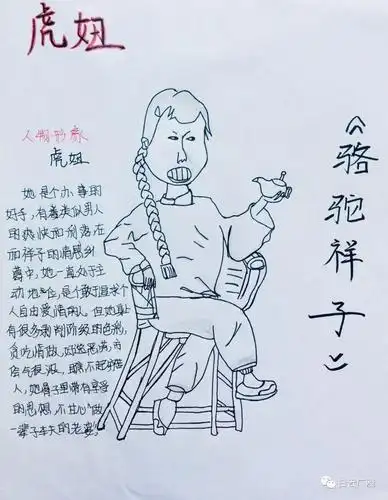 虎妞
人物形象
虎妞
她是个办事的
好手,有着类似男人
的爽快和利落在
面祥子的情感纠
葛中,她一直处于主
动地位,是个敢于追求个
人自由爱情的人,但她身上
有很多剥削阶级的色彩,
贪吃惰做,好逸恶劳,市
侩气很浓,瞧不起
人,她骨子里带有享受
的思想,不甘心做
一辈子车夫的老婆。
《骆驼祥子》